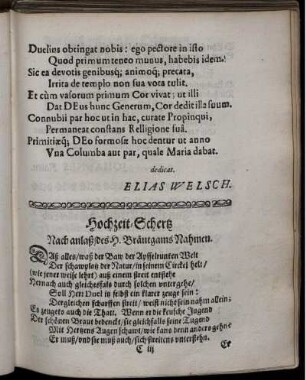 Duelies obtingat nobis: ego pectore in isto
Quod primum tento munus, habebis idem.
Sic ea devotis genibusq; animoq; precata,
Irrita de templo non sua vota tulit.
Et cùm vasorum primum Cor vivat; ut illi
Dat DEus hunc Generum, Cor dedit illa suum.
Connubii par hoc ut in hac, curate Propinqui,
Permaneat constans Relligione suâ.
Primitiæq; DEo formosæ hoc dentur ut anno
Vna Columba aut par, quale Maria dabat.
dedicat.
ELIAS WELSCH.
Hochzeit-Schertz
Nach anlaß des H. Bräutgams Nahmen.
Daß alles/ waß der Baw der Apffelrunten Welt
Der schawplatz der Natur/ in seinem Circkel helt/
(wie jener weise lehrt) auß einem streit entstehe
Hernach auch gleichesfals durch solchen untergehe/
Soll Herr Duel ie freylich ein klarer zeuge sein:
Dergleichen scharffen streit/ weiß nicht sein nahm allein:
Es zeugets auch die That. Wenn er die keusche Jugend
Der schönen Braut bedenckt/ die gleichsals seine Tugend
Mit Hertzens Augen schawt/ wie kans denn anders gehn
Er muß/ und sie muß auch/ sich streitens unterstehn.
C iij
Er